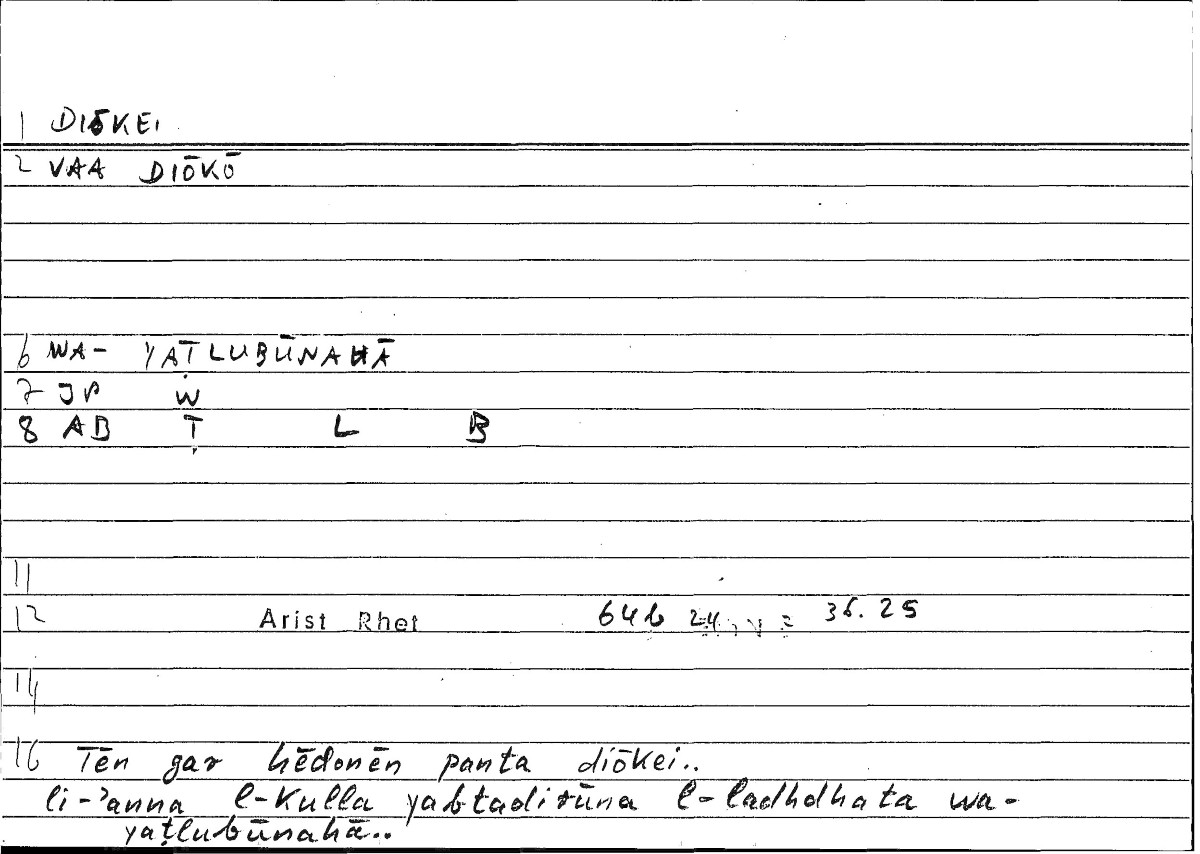 1 DIŌKEI
2 VAA DIŌKŌ
6 WA- YAṬLUBŪNAHĀ
7 IP W
8 AB Ṭ L B
11
12 Arist Rhet 64b 24 = 36.25
14
16 Tēn gar hēdonēn panta diōkei..
li-'anna l-kulla yabtadirūna l-ladhdhata wa-
yaṭlubūnahā..